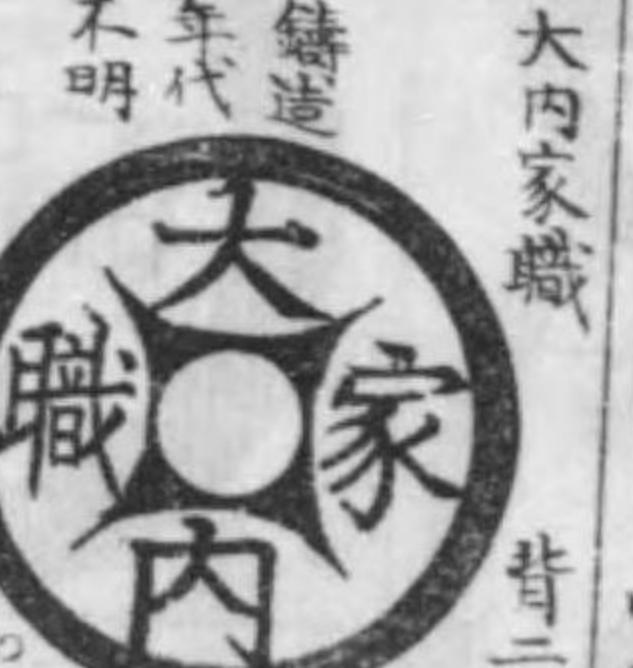 大内家職
背二
鋳造
年代
不明
大内家職
つ